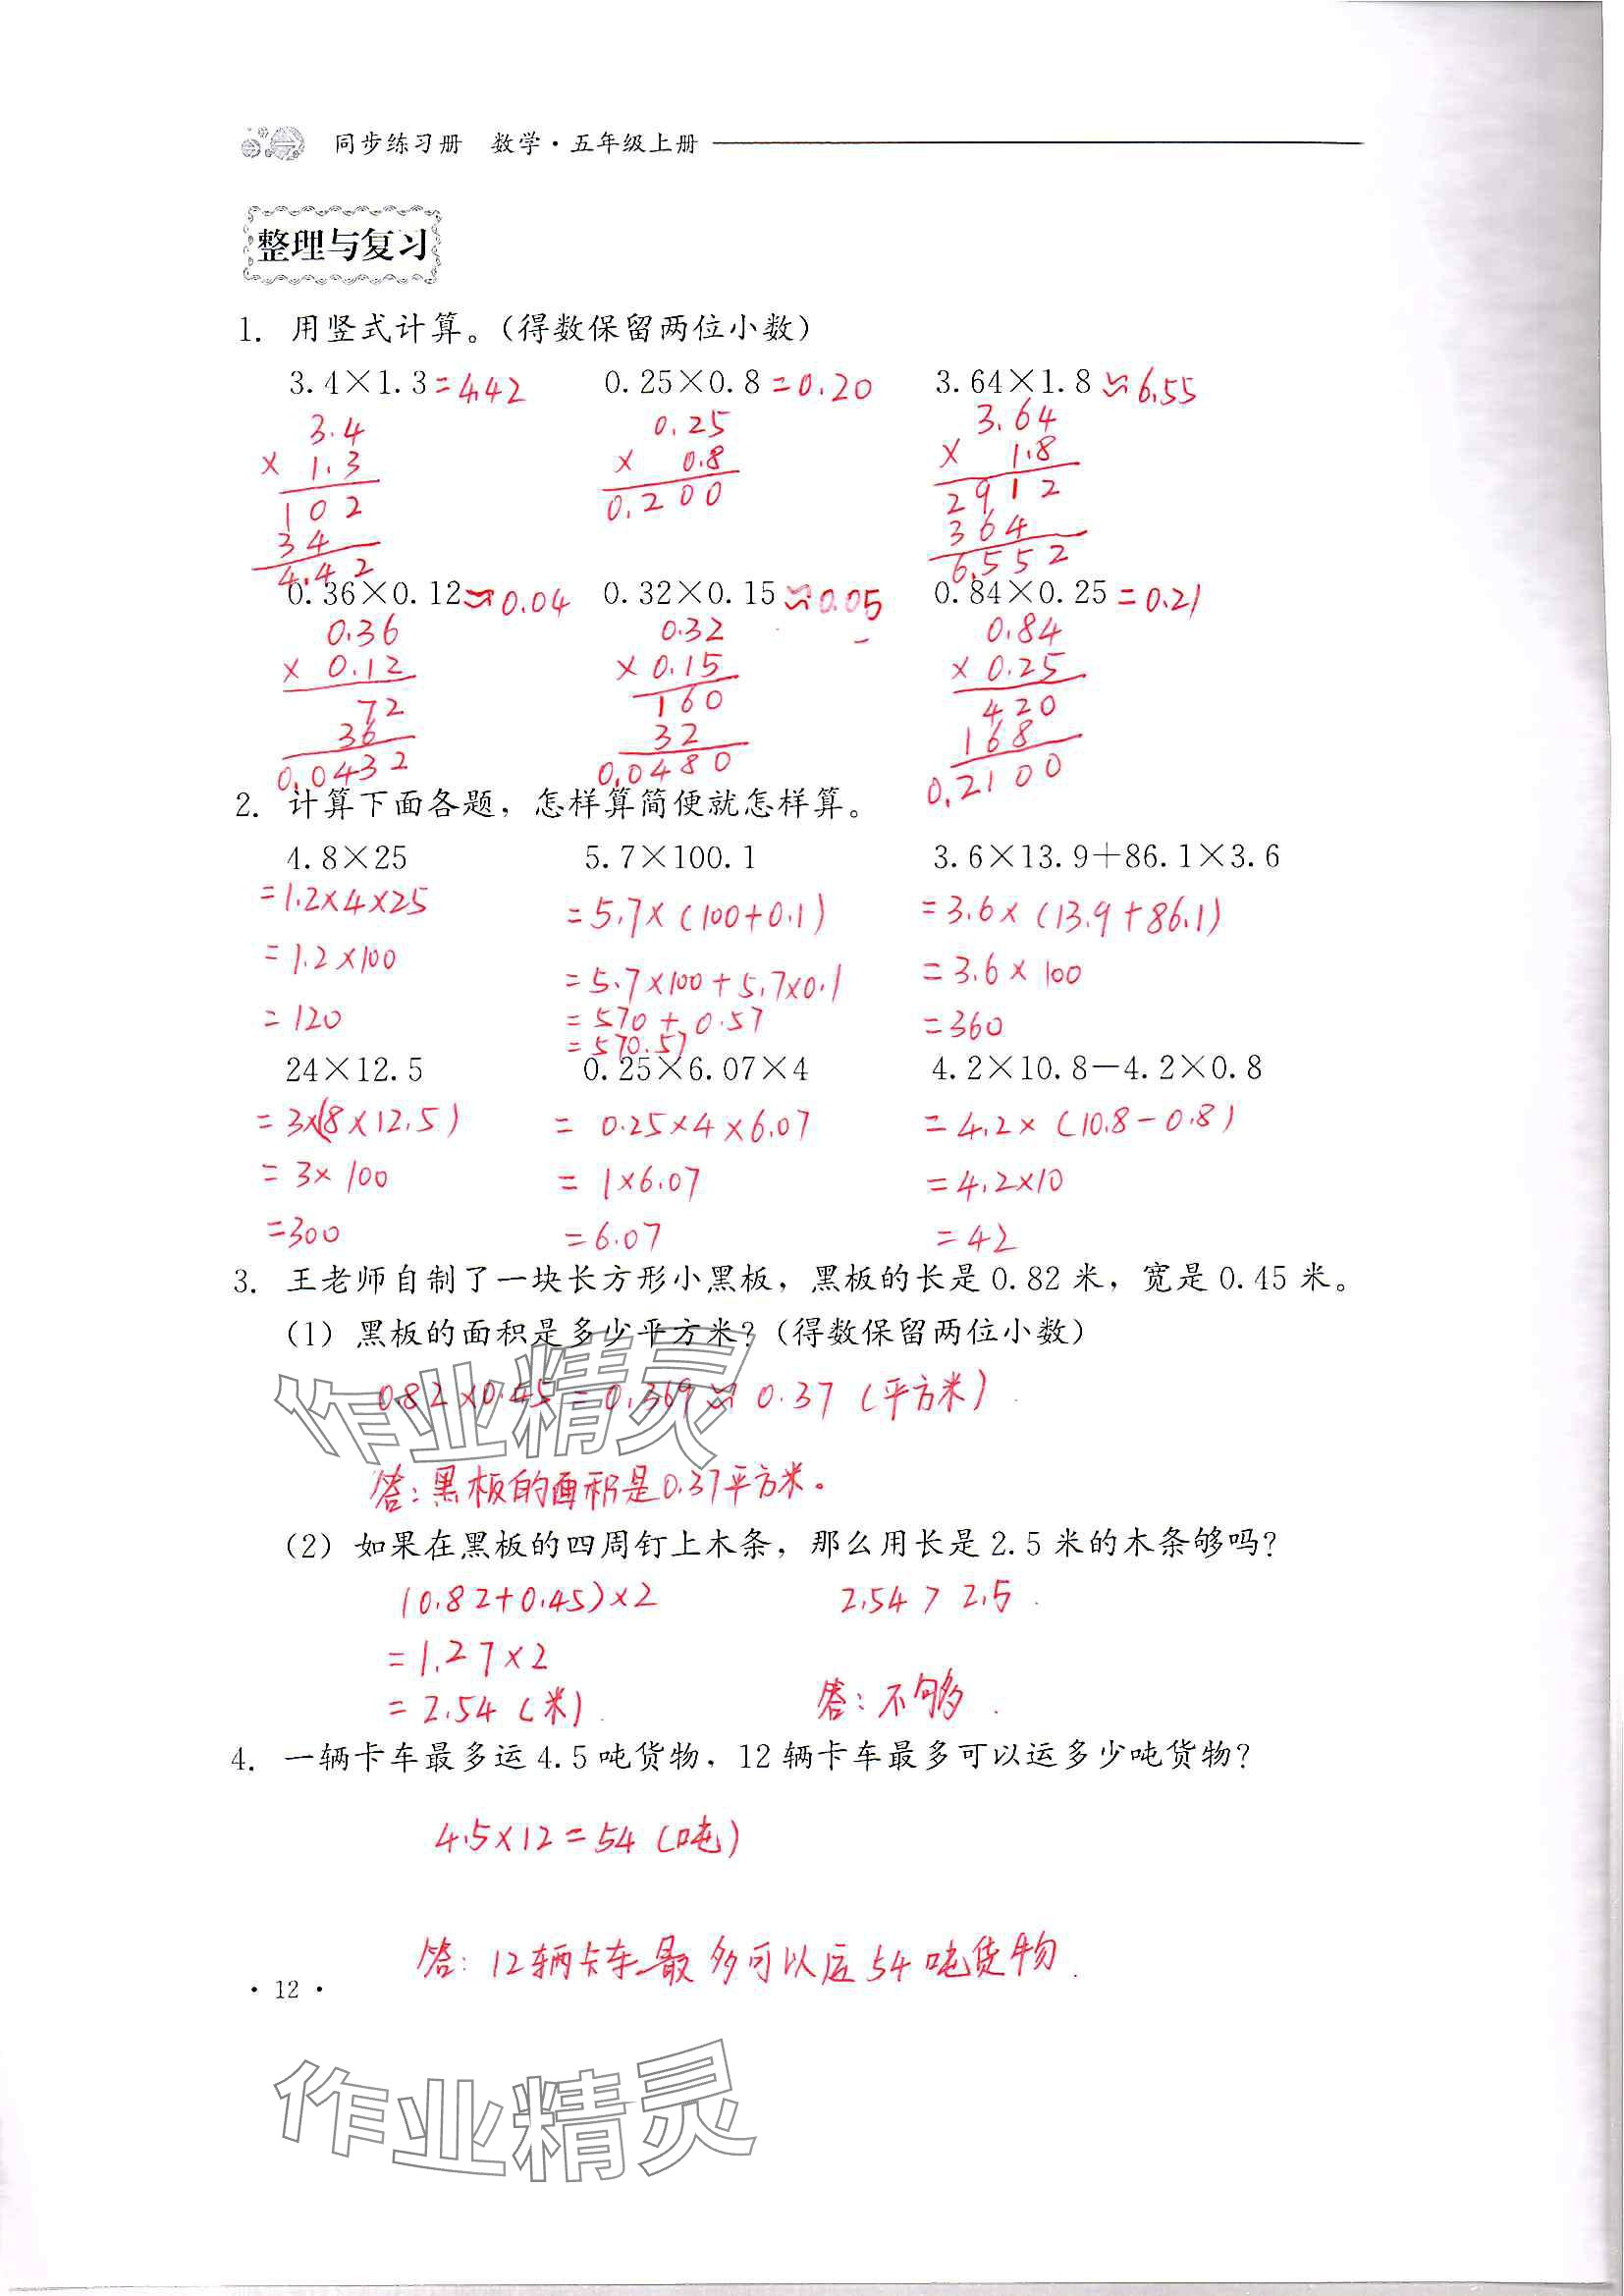 同步练习册 数学·五年级上册
整理与复习
1. 用竖式计算。(得数保留两位小数)
3.4×1.3=4.42 0.25×0.8=0.20 3.64×1.8≈6.55
3.4 0.25 3.64
× 1.3 × 0.8 × 1.8
102 0.200 2912
34 364
4.42 6.552
0.36×0.12≈0.04 0.32×0.15≈0.05 0.84×0.25=0.21
0.36 0.32 0.84
× 0.12 × 0.15 × 0.25
72 160 420
36 32 168
0.0432 0.0480 0.2100
2. 计算下面各题，怎样算简便就怎样算。
4.8×25 5.7×100.1 3.6×13.9+86.1×3.6
=1.2×4×25 =5.7×(100+0.1) =3.6×(13.9+86.1)
=1.2×100 =5.7×100+5.7×0.1 =3.6×100
=120 =570+0.57 =360
=570.57
24×12.5 0.25×6.07×4 4.2×10.8-4.2×0.8
=3×(8×12.5) =0.25×4×6.07 =4.2×(10.8-0.8)
=3×100 =1×6.07 =4.2×10
=300 =6.07 =42
3. 王老师自制了一块长方形小黑板，黑板的长是0.82米，宽是0.45米。
(1) 黑板的面积是多少平方米?(得数保留两位小数)
0.82×0.45=0.369≈0.37(平方米)
答:黑板的面积是0.37平方米。
(2) 如果在黑板的四周钉上木条，那么用长是2.5米的木条够吗?
(0.82+0.45)×2 2.54>2.5
=1.27×2
=2.54(米) 答:不够
4. 一辆卡车最多运4.5吨货物，12辆卡车最多可以运多少吨货物?
4.5×12=54(吨)
答:12辆卡车最多可以运54吨货物.
·12·
作业精灵
作业精灵